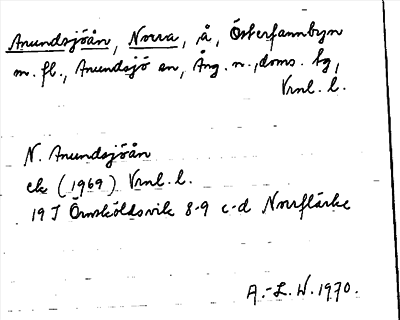 Anundsjöån, Norra, å, Österfannbyn
m. fl., Anundsjö sn, Ång. n., doms. bg,
Vrnl. l.
N. Anundsjöån
ek (1969) Vrnl. l.
19 J Örnsköldsvik 8-9 c-d Norrflärke
A.-L. W. 1970.